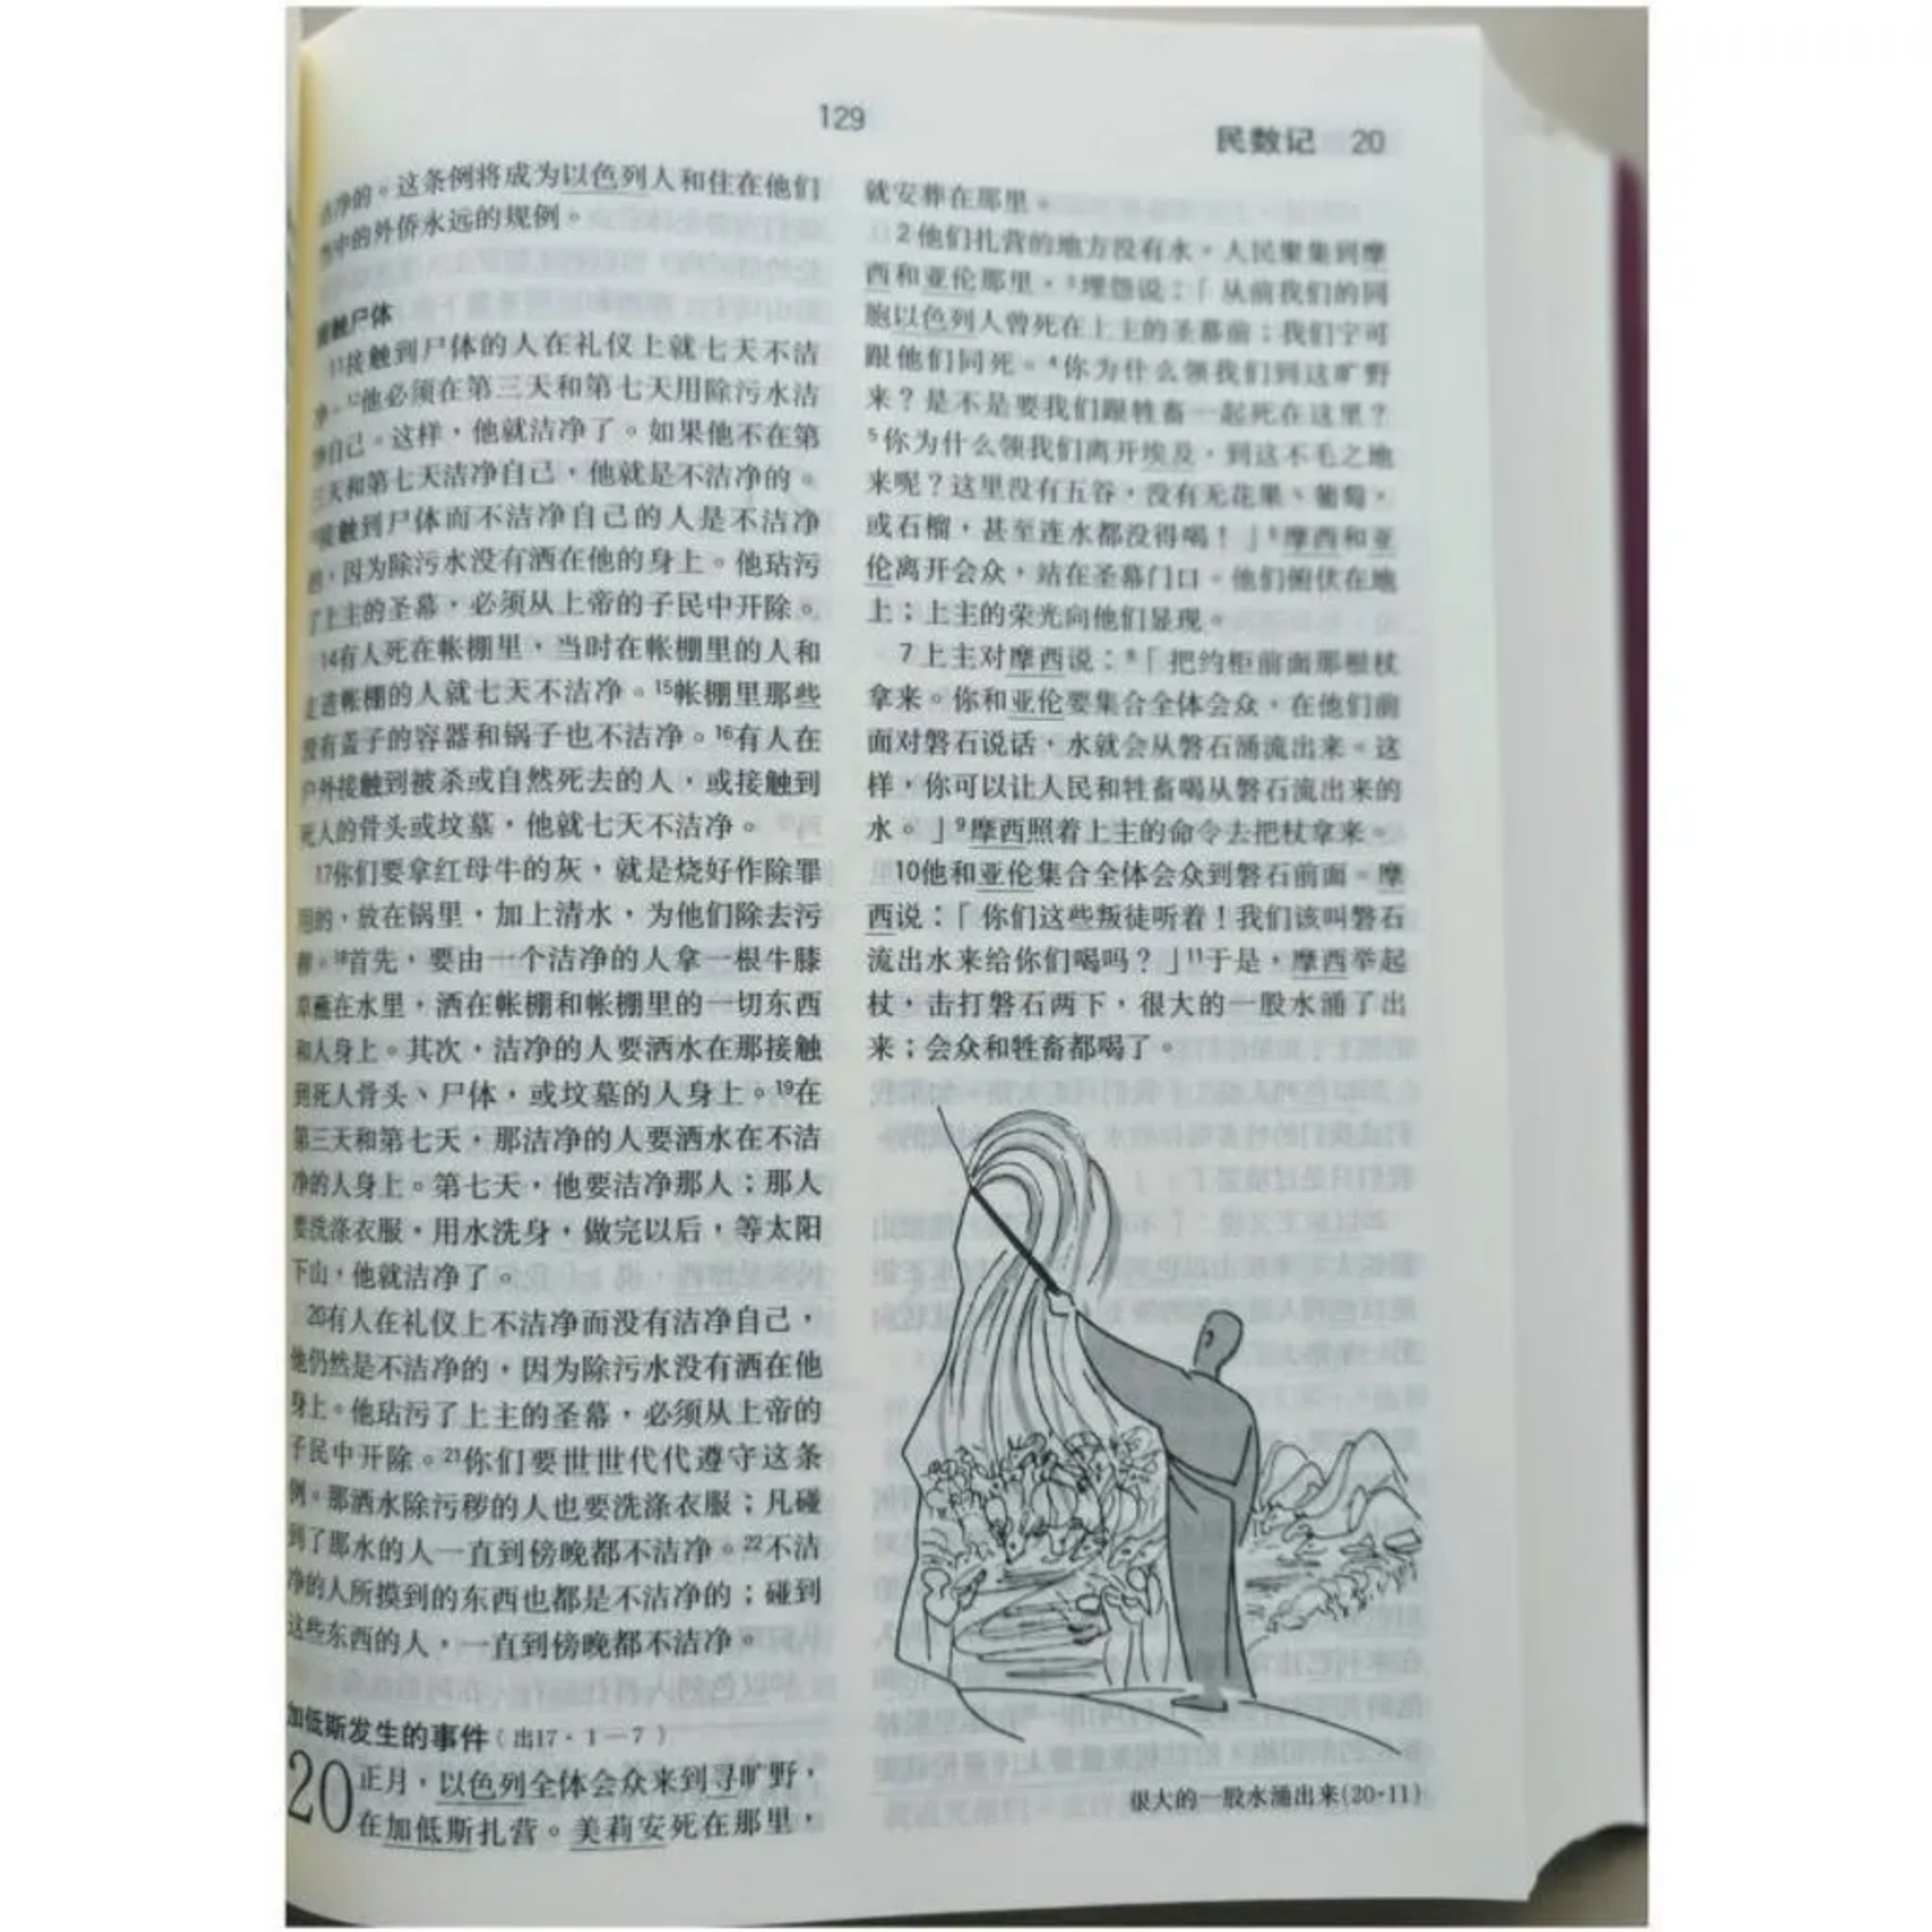 129
民数记 20
洁净的。这条例将成为以色列人和住在他们
当中的外侨永远的规例。
接触尸体
11接触到尸体的人在礼仪上就七天不洁
净。12他必须在第三天和第七天用除污水洁
净自己。这样，他就洁净了。如果他不在第
三天和第七天洁净自己，他就是不洁净的。
13接触到尸体而不洁净自己的人是不洁净
的，因为除污水没有洒在他的身上。他玷污
了上主的圣幕，必须从上帝的子民中开除。
14有人死在帐棚里，当时在帐棚里的人和
走进帐棚的人就七天不洁净。15帐棚里那些
没有盖子的容器和锅子也不洁净。16有人在
户外接触到被杀或自然死去的人，或接触到
死人的骨头或坟墓，他就七天不洁净。
17你们要拿红母牛的灰，就是烧好作除罪
用的，放在锅里，加上清水，为他们除去污
秽。18首先，要由一个洁净的人拿一根牛膝
草蘸在水里，洒在帐棚和帐棚里的一切东西
和人身上。其次，洁净的人要洒水在那接触
到死人骨头、尸体，或坟墓的人身上。19在
第三天和第七天，那洁净的人要洒水在不洁
净的人身上。第七天，他要洁净那人；那人
要洗涤衣服，用水洗身，做完以后，等太阳
下山，他就洁净了。
20有人在礼仪上不洁净而没有洁净自己，
他仍然是不洁净的，因为除污水没有洒在他
身上。他玷污了上主的圣幕，必须从上帝的
子民中开除。21你们要世世代代遵守这条
例。那洒水除污秽的人也要洗涤衣服；凡碰
到了那水的人一直到傍晚都不洁净。22不洁
净的人所摸到的东西也都是不洁净的；碰到
这些东西的人，一直到傍晚都不洁净。
加低斯发生的事件（出17·1—7）
20 正月，以色列全体会众来到寻旷野，
在加低斯扎营。美莉安死在那里，
就安葬在那里。
2他们扎营的地方没有水。人民聚集到摩
西和亚伦那里，3埋怨说：「从前我们的同
胞以色列人曾死在上主的圣幕前；我们宁可
跟他们同死。4你为什么领我们到这旷野
来？是不是要我们跟牲畜一起死在这里？
5你为什么领我们离开埃及，到这不毛之地
来呢？这里没有五谷，没有无花果、葡萄，
或石榴，甚至连水都没得喝！」6摩西和亚
伦离开会众，站在圣幕门口。他们俯伏在地
上；上主的荣光向他们显现。
7上主对摩西说：8「把约柜前面那根杖
拿来。你和亚伦要集合全体会众，在他们前
面对磐石说话，水就会从磐石涌流出来。这
样，你可以让人民和牲畜喝从磐石流出来的
水。」9摩西照着上主的命令去把杖拿来。
10他和亚伦集合全体会众到磐石前面。摩
西说：「你们这些叛徒听着！我们该叫磐石
流出水来给你们喝吗？」11于是，摩西举起
杖，击打磐石两下，很大的一股水涌了出
来；会众和牲畜都喝了。
很大的一股水涌出来(20·11)